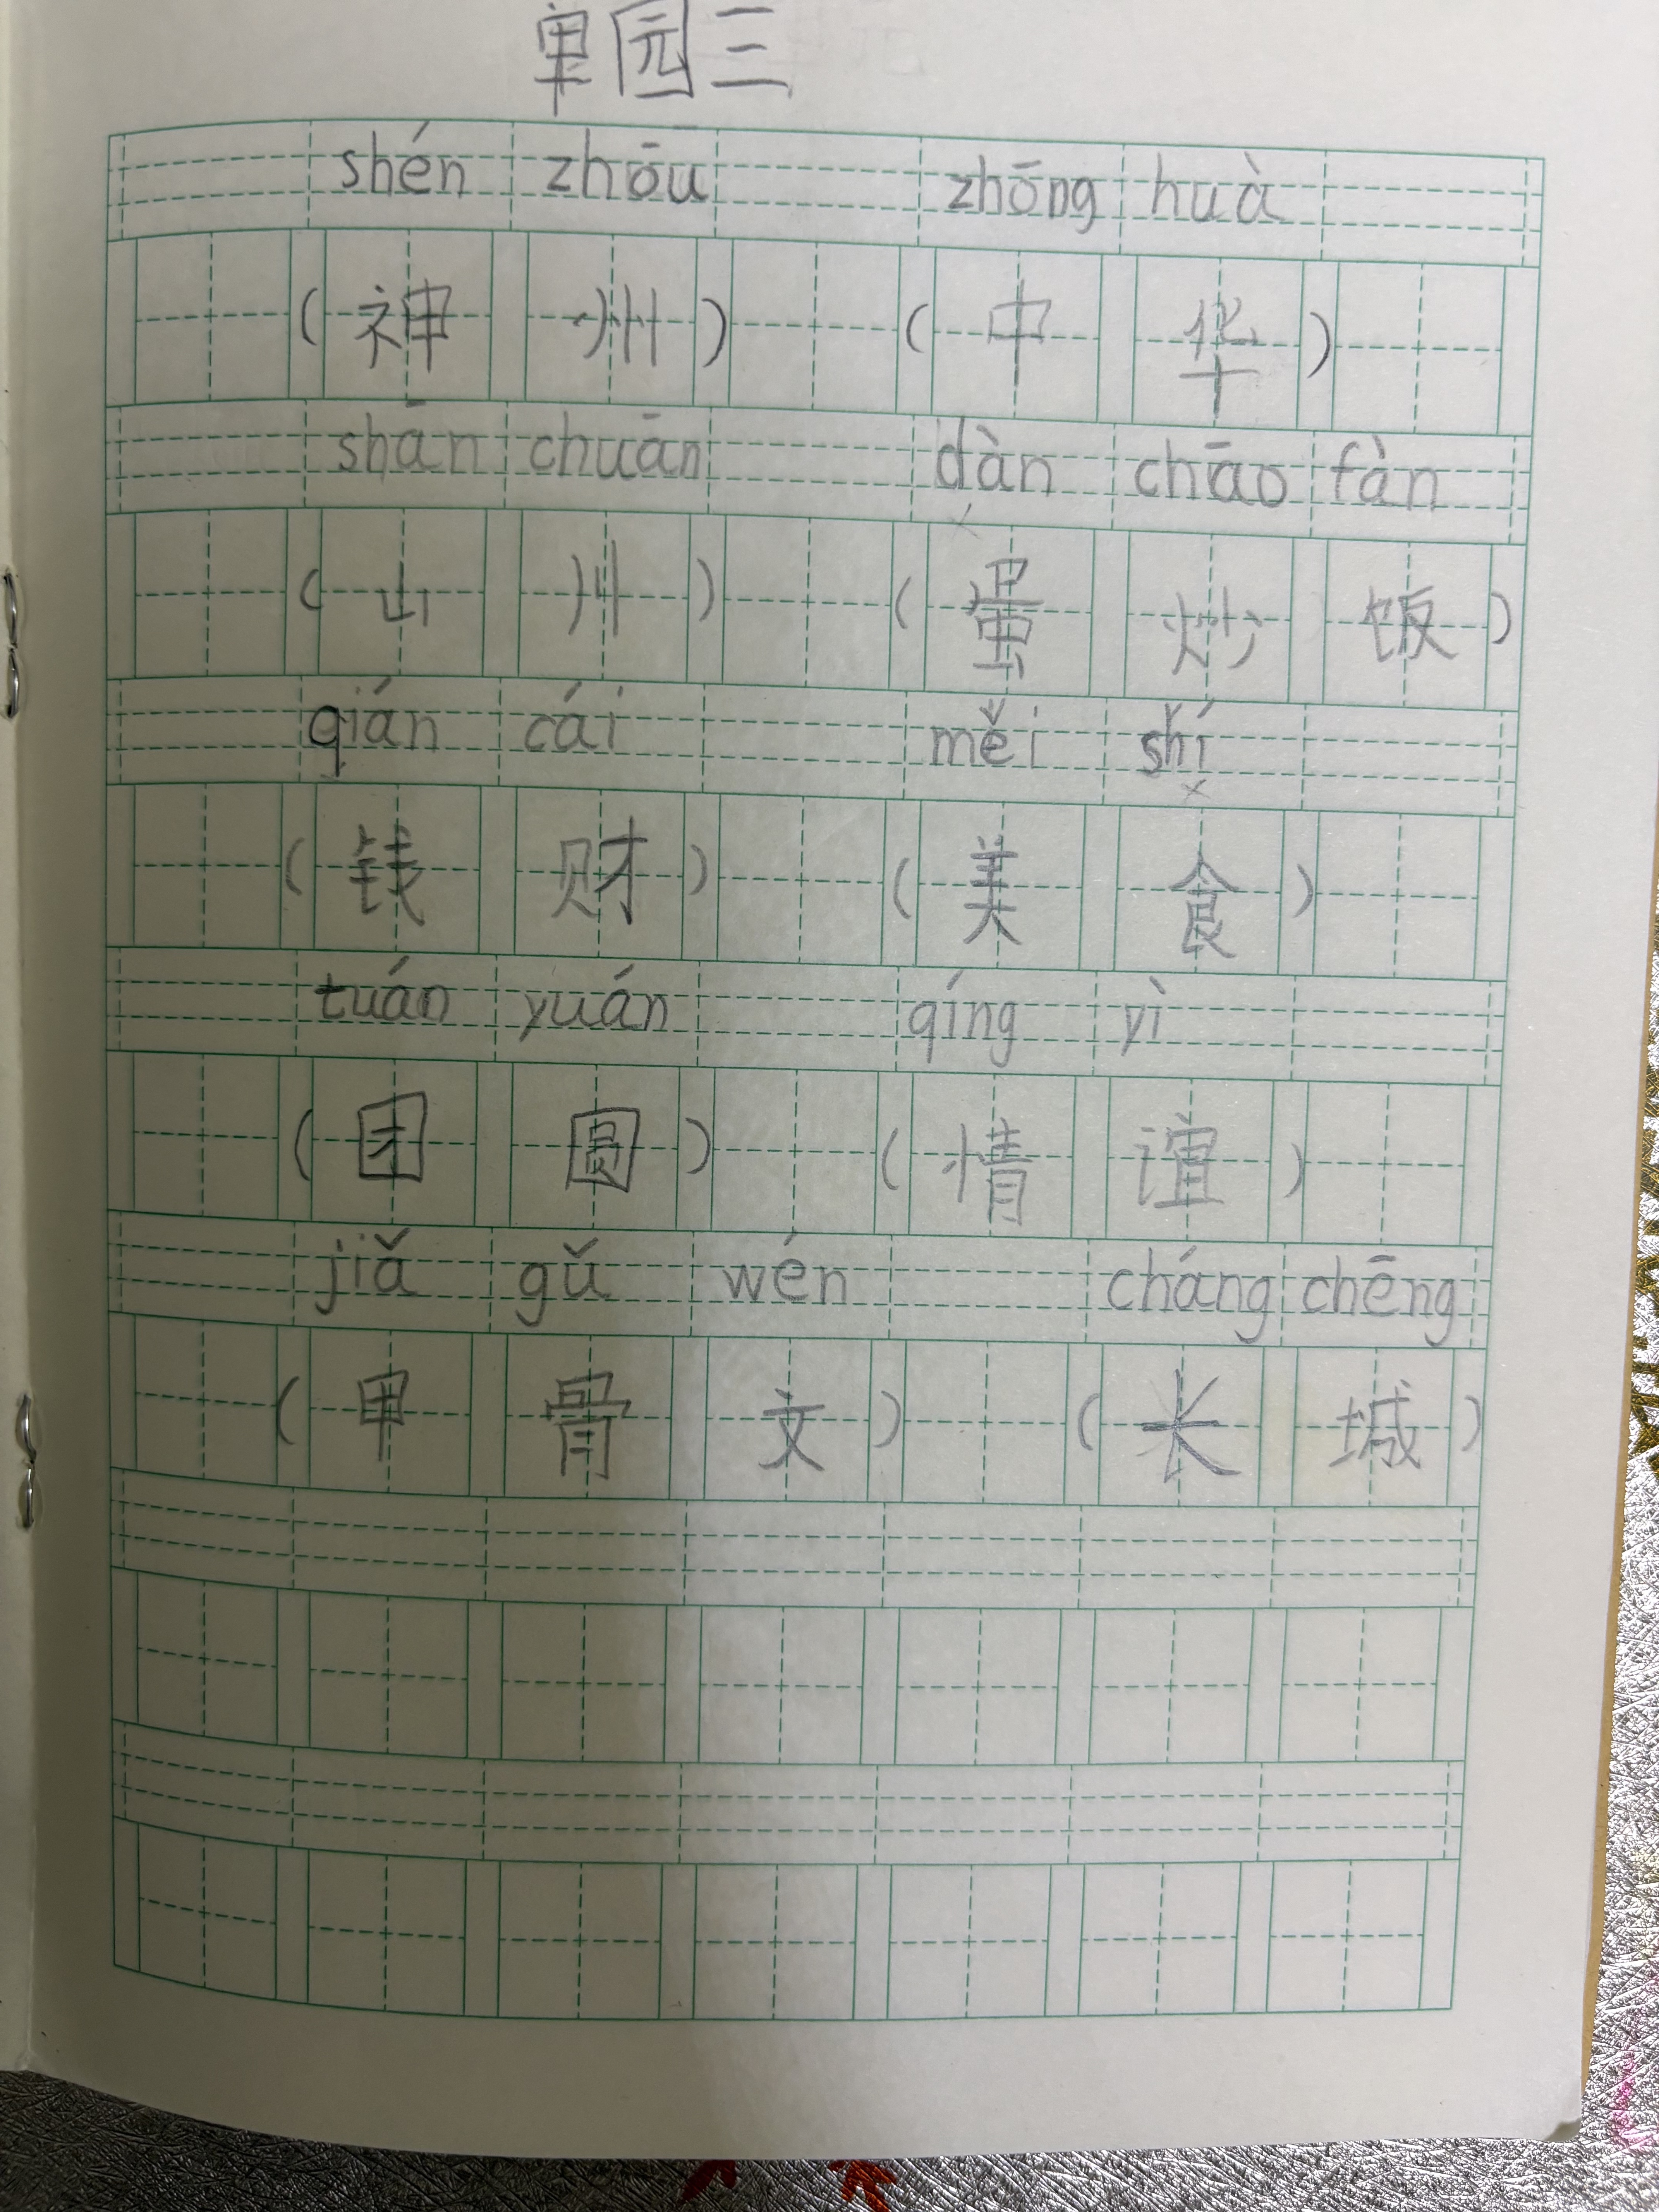 单园三
shén zhōu zhōng huà
(神州) (中华)
shān chuān dàn chāo fàn
(山川) (蛋炒饭)
qián cái měi shí
(钱财) (美食)
tuán yuán qíng yì
(团圆) (情谊)
jiǎ gǔ wén cháng chēng
(甲骨文) (长城)